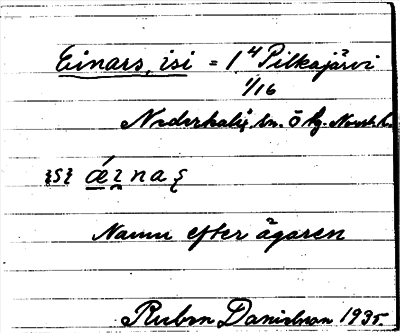 Einars, isi = 1⁴ Pilkajärvi
1/16
Nederkalix sn. ö
ǽɪnaʂ
Namn efter ägaren
Ruben Danielsson 1935.